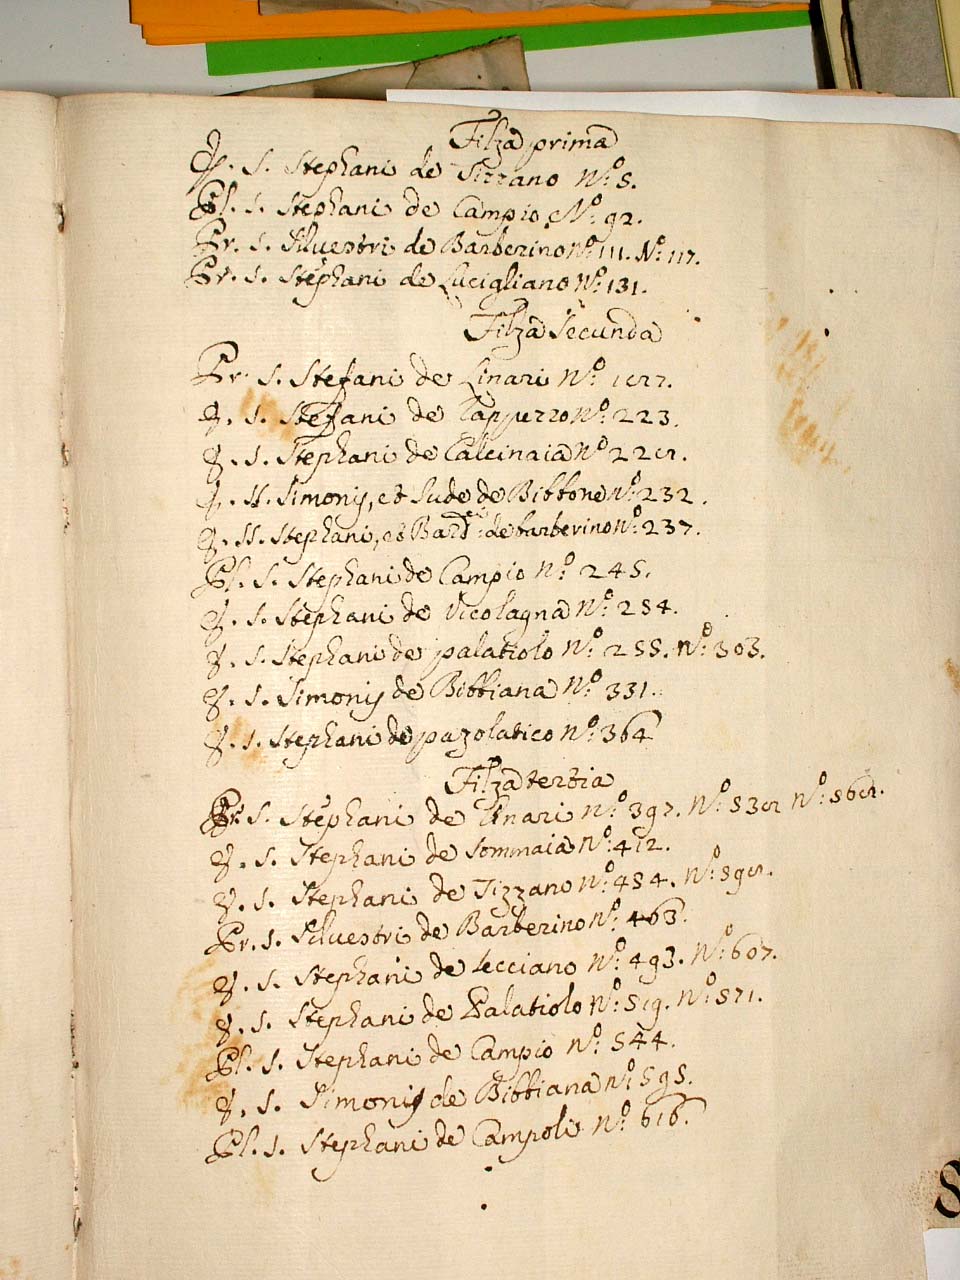 Filza prima
&. S. Stephani de Tizzano N.º 5.
Pl. S. Stephani de Campio N.º 92.
Pr. S. Silvestri de Barberino N.º 111. N.º 117.
Pr. S. Stephani de Lucigliano N.º 131.
Filza Secunda
Pr. S. Stefani de Linari N.º
&. S. Stefani de N.º 223.
&. S. Stephani de Calcinaia N.º
&. SS. Simonis, et Jude de Bibbone N.º 232.
&. SS. Stephani, et Bard. de barberino N.º 237.
Pl. S. Stephani de Campio N.º 245.
&. S. Stephani de Vicolagna N.º 254.
&. S. Stephani de palatiolo N.º 255. N.º 303.
&. S. Simonis de Bibbiana N.º 331.
&. S. Stephani de pazolatico N.º 364
Filza tertia
Pr. S. Stephani de Linari N.º 397. N.º N.º
&. S. Stephani de Sommaia N.º 412.
&. S. Stephani de Tizzano N.º 454. N.º
Pr. S. Silvestri de Barberino N.º 463.
&. S. Stephani de Lecciano N.º 493. N.º 607.
&. S. Stephani de Palatiolo N.º 519. N.º 571.
Pl. S. Stephani de Campio N.º 544.
&. S. Simonis de Bibbiana N.º 595.
Pl. S. Stephani de Campoli N.º 616.
S